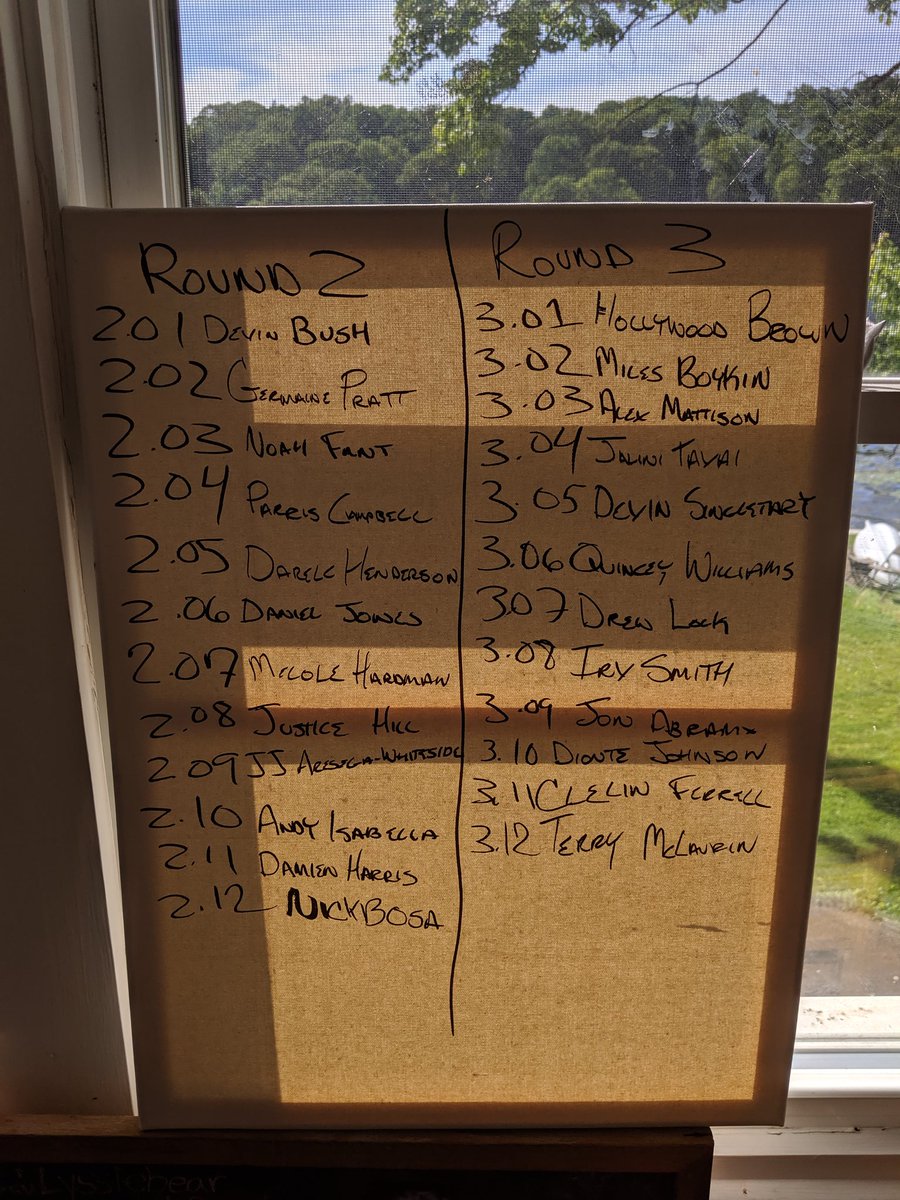 ROUND 2
2.01 DEVIN BUSH
2.02 GERMAINE PRATT
2.03 NOAH FANT
2.04 PARRIS CAMPBELL
2.05 DARELL HENDERSON
2.06 DANIEL JONES
2.07 MICOLE HARDMAN
2.08 JUSTICE HILL
2.09 JJ ARESEGA-WHITESIDE
2.10 ANDY ISABELLA
2.11 DAMIEN HARRIS
2.12 NICK BOSA
ROUND 3
3.01 HOLLYWOOD BROWN
3.02 MILES BOYKIN
3.03 ALEX MATTISON
3.04 JALINI TAVAI
3.05 DEVIN SINGLETARY
3.06 QUINCEY WILLIAMS
3.07 DREW LOCK
3.08 IRV SMITH
3.09 JON ABRAMX
3.10 DIONTE JOHNSON
3.11 CLELIN FERRELL
3.12 TERRY MCLAURIN